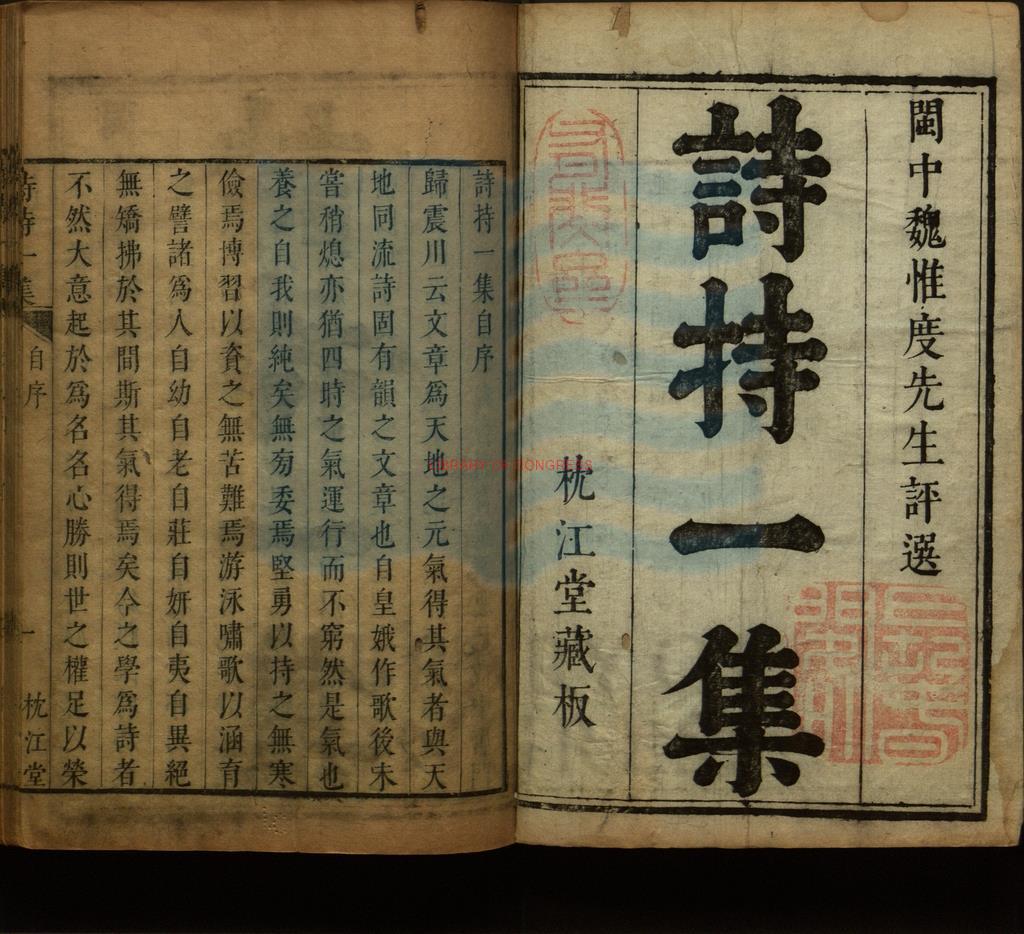 閩中魏惟度先生評選
詩持一集
枕江堂藏板
詩持一集自序
歸震川云文章為天地之元氣得其氣者與天
地同流詩固有韻之文章也自皇娥作歌後未
嘗稍熄亦猶四時之氣運行而不窮然是氣也
養之自我則純矣無旁委焉堅勇以持之無寒
儉焉博習以資之無苦難焉游泳嘯歌以涵育
之譬諸爲人自幼自老自莊自妍自夷自異絕
無矯拂於其間斯其氣得焉矣今之學爲詩者
不然大意起於爲名名心勝則世之權足以榮
詩持一集 自序 一 枕江堂
LIBRARY OF CONGRESS